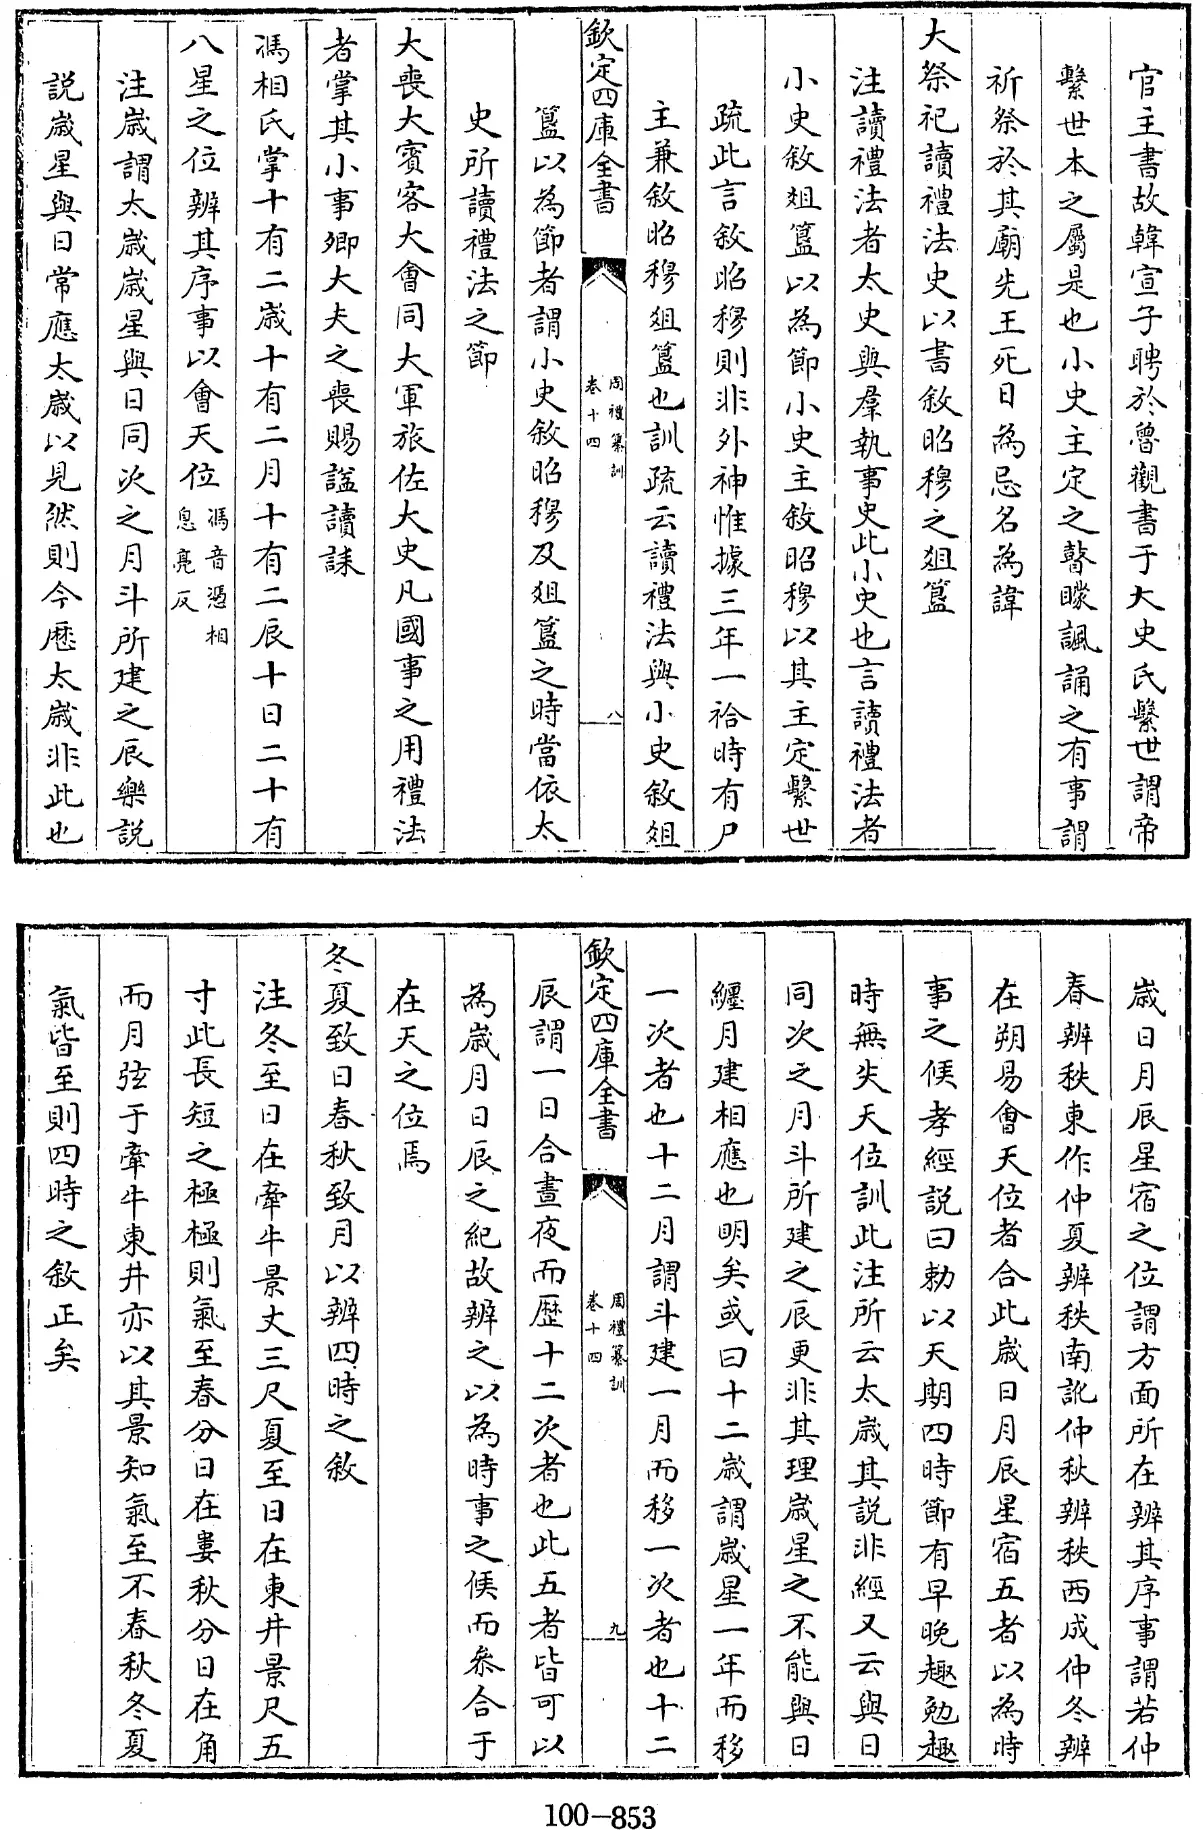 官主書故韓宣子聘於魯觀書于大史氏繫世謂帝
繫世本之屬是也小史主定之瞽矇諷誦之有事謂
祈祭於其廟先王死日為忌名為諱
大祭祀讀禮法史以書敘昭穆之俎簋
注讀禮法者太史與羣執事史此小史也言讀禮法者
小史敘俎簋以為節小史主敘昭穆以其主定繫世
疏此言敘昭穆則非外神惟據三年一祫時有尸
主兼敘昭穆俎簋也訓疏云讀禮法與小史敘俎
欽定四庫全書
周禮纂訓
卷十四
八
簋以為節者謂小史敘昭穆及俎簋之時當依太
史所讀禮法之節
大喪大賓客大會同大軍旅佐大史凡國事之用禮法
者掌其小事卿大夫之喪賜諡讀誄
馮相氏掌十有二歲十有二月十有二辰十日二十有
八星之位辨其序事以會天位馮音憑相
息亮反
注歲謂太歲歲星與日同次之月斗所建之辰樂説
説歲星與日常應太歲以見然則今歷太歲非此也
歲日月辰星宿之位謂方面所在辨其序事謂若仲
春辨秩東作仲夏辨秩南訛仲秋辨秩西成仲冬辨
在朔易會天位者合此歲日月辰星宿五者以為時
事之候孝經説曰勅以天期四時節有早晚趣勉趣
時無失天位訓此注所云太歲其説非經又云與日
同次之月斗所建之辰更非其理歲星之不能與日
纏月建相應也明矣或曰十二歲謂歲星一年而移
一次者也十二月謂斗建一月而移一次者也十二
欽定四庫全書
周禮纂訓
卷十四
九
辰謂一日合晝夜而歷十二次者也此五者皆可以
為歲月日辰之紀故辨之以為時事之候而叅合于
在天之位焉
冬夏致日春秋致月以辨四時之敘
注冬至日在牽牛景丈三尺夏至日在東井景尺五
寸此長短之極極則氣至春分日在婁秋分日在角
而月弦于牽牛東井亦以其景知氣至不春秋冬夏
氣皆至則四時之敘正矣
100-853